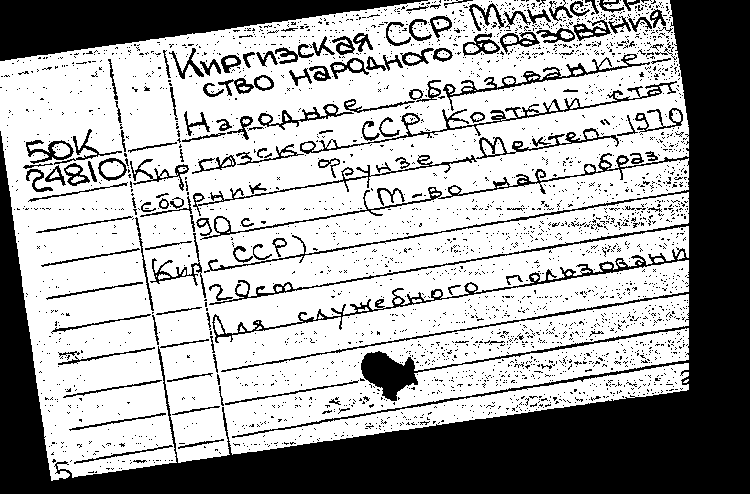 Киргизская ССР. Министер-
ство народного образования
Народное образование
50К
24810
Киргизской ССР. Краткий стат.
сборник. Фрунзе, „Мектеп", 1970
90 с. (М-во нар. образ.
Кирг. ССР).
20 cm.
Для служебного пользовани
5